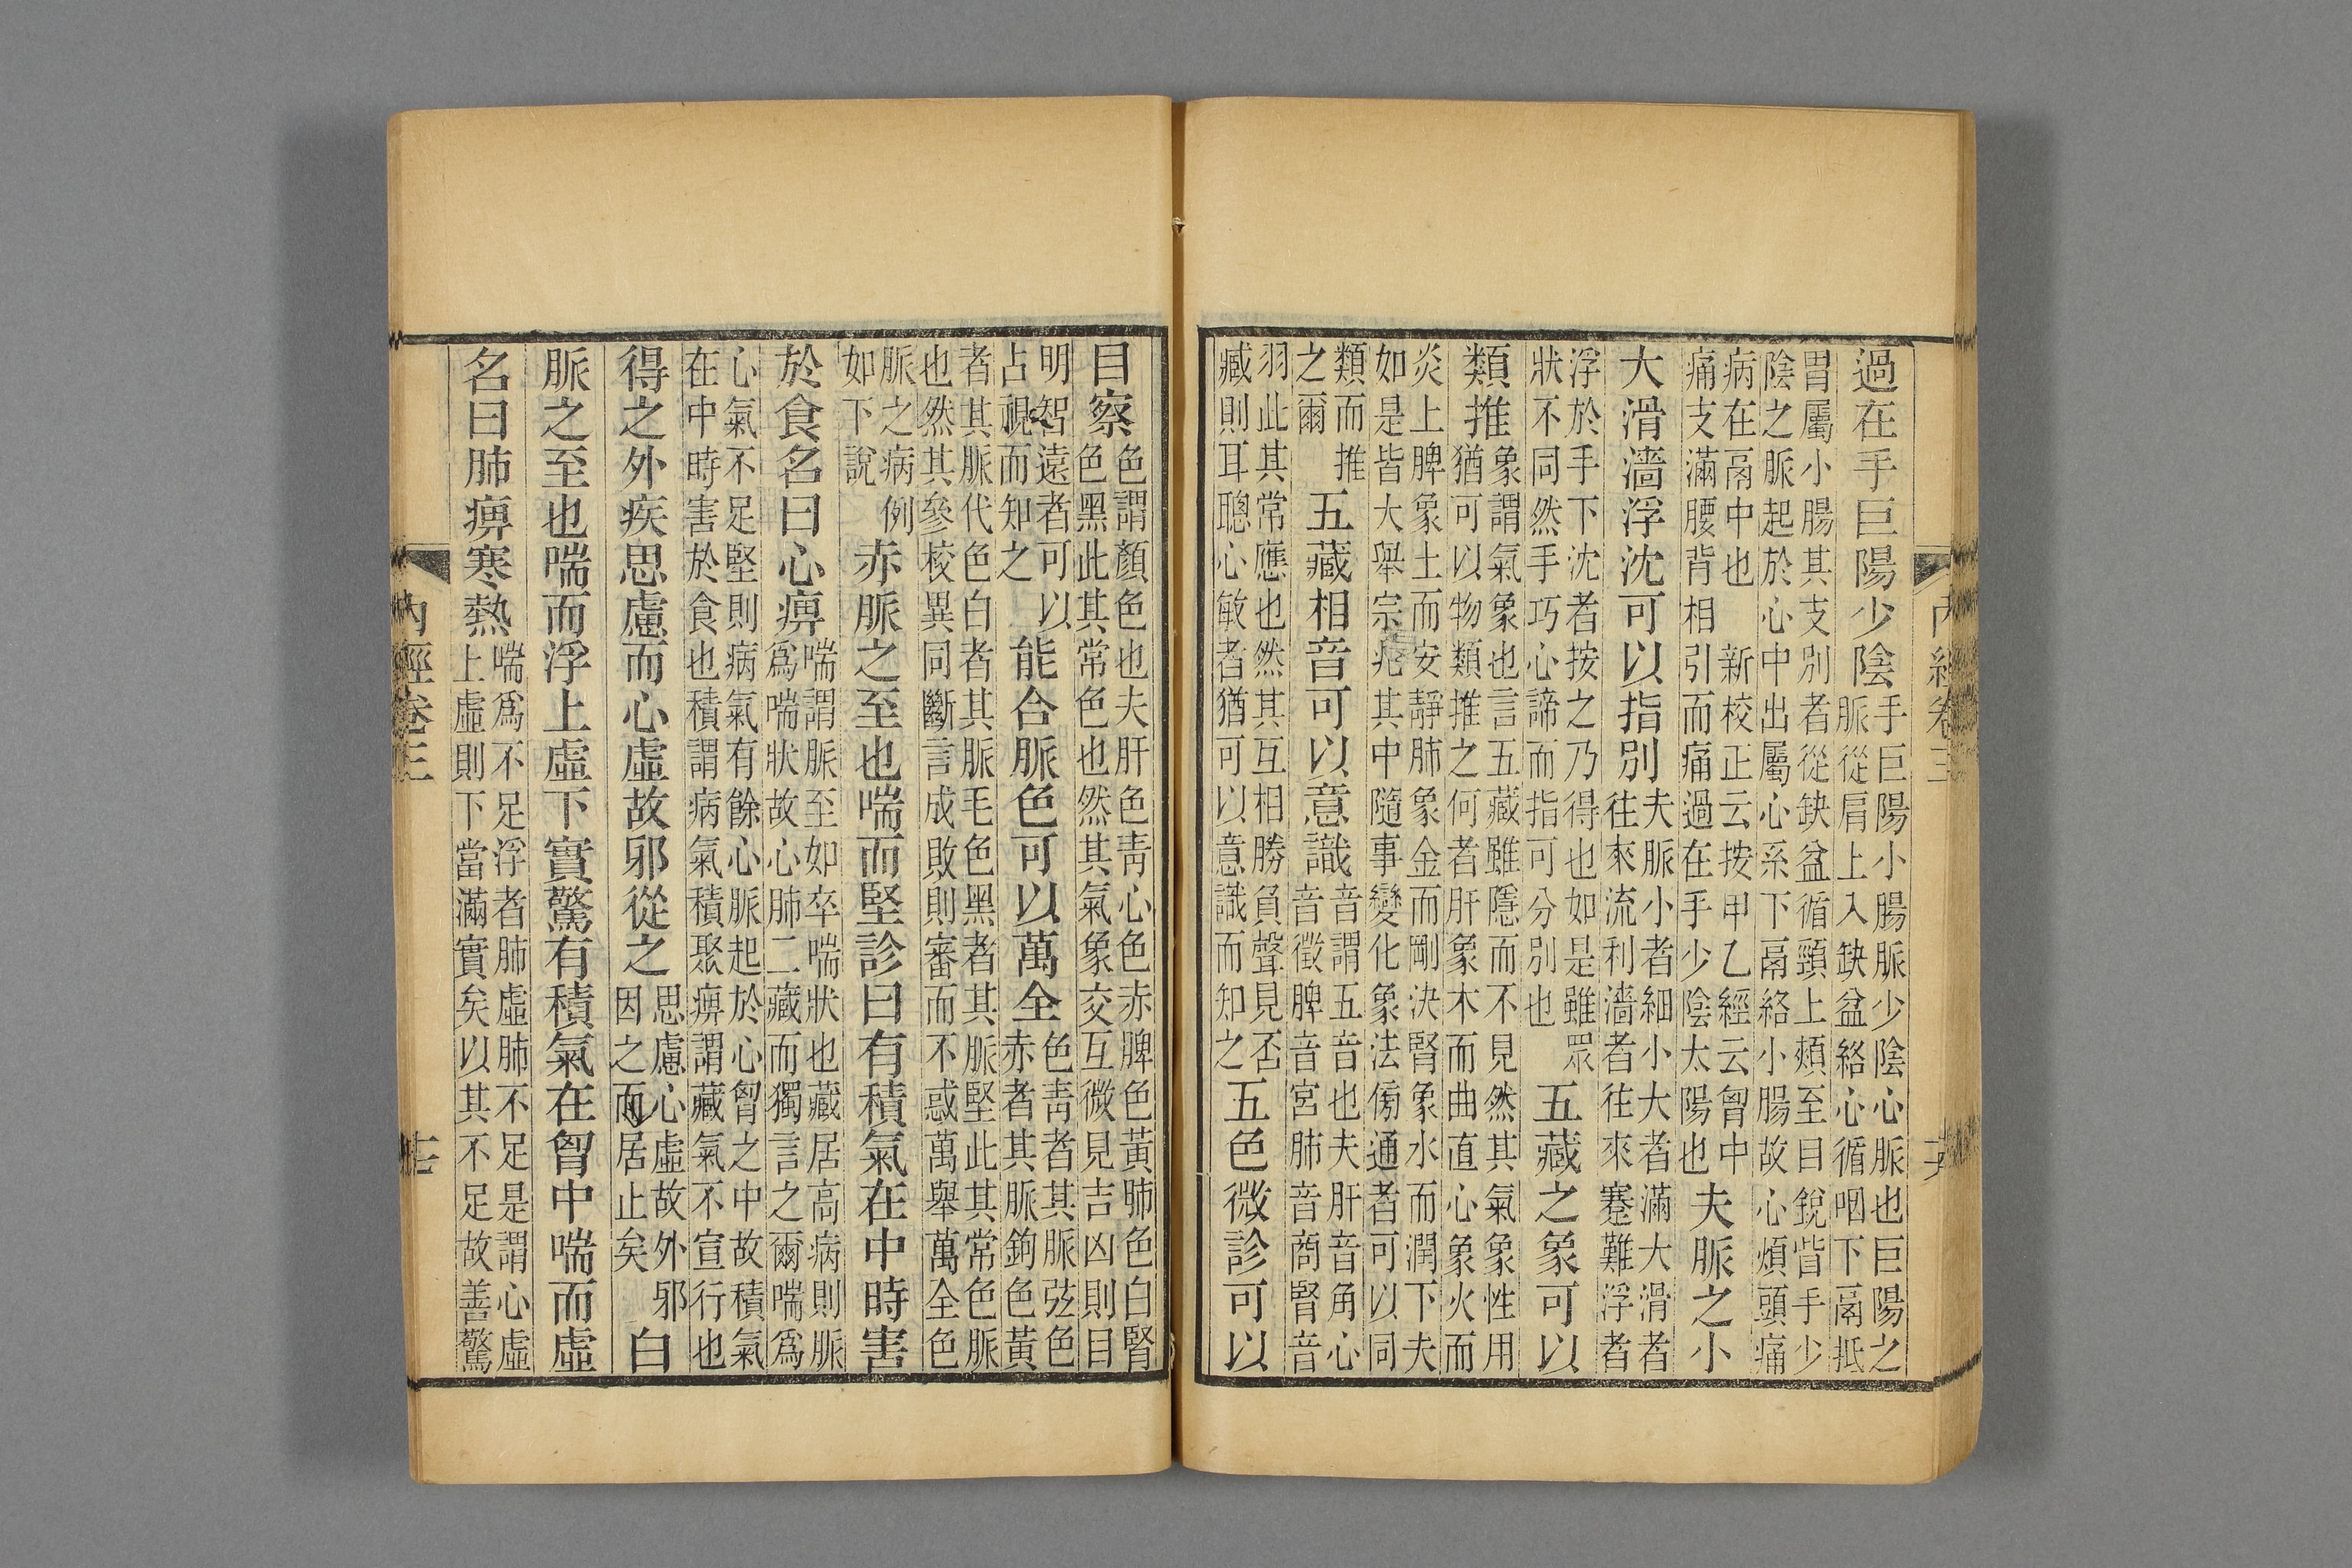 過在手巨陽少陰手巨陽小腸脈少陰心脈也巨陽之脈從肩上入缺盆絡心循咽下鬲抵
胃屬小腸其支別者從缺盆循頸上頰至目銳眥手少陰之脈起於心中出屬心系下鬲絡小腸故心煩頭痛
病在鬲中也 新校正云按甲乙經云胷中痛支滿腰背相引而痛過在手少陰太陽也夫脈之小
大滑濇浮沈可以指別夫脈小者細小大者滿大滑者往來流利濇者往來蹇難浮者
浮於手下沈者按之乃得也如是雖眾狀不同然手巧心諦而指可分別也五藏之象可以
類推象謂氣象也言五藏雖隱而不見然其氣象性用猶可以物類推之何者肝象木而曲直心象火而
炎上脾象土而安靜肺象金而剛決腎象水而潤下夫如是皆大舉宗兆其中隨事變化象法傍通者可以同
類而推之爾五藏相音可以意識音謂五音也夫肝音角心音徵脾音宮肺音商腎音
羽此其常應也然其互相勝負聲見否臧則耳聰心敏者猶可以意識而知之五色微診可以
內經卷三
目察色謂顏色也夫肝色青心色赤脾色黃肺色白腎色黑此其常色也然其氣象交互微見吉凶則目
明智遠者可以占視而知之能合脈色可以萬全色青者其脈弦色赤者其脈鉤色黃
者其脈代色白者其脈毛色黑者其脈堅此其常色脈也然其參校異同斷言成敗則審而不惑萬舉萬全色
脈之病例如下說赤脈之至也喘而堅診曰有積氣在中時害
於食名曰心痹喘謂脈至如卒喘狀也藏居高病則脈為喘狀故心肺二藏而獨言之爾喘為
心氣不足堅則病氣有餘心脈起於心胷之中故積氣在中時害於食也積謂病氣積聚痹謂藏氣不宣行也
得之外疾思慮而心虛故邪從之思慮心虛故外邪因之而居止矣白
脈之至也喘而浮上虛下實驚有積氣在胷中喘而虛
名曰肺痹寒熱喘為不足浮者肺虛肺不足是謂心虛上虛則下當滿實矣以其不足故善驚
內經卷三
十七